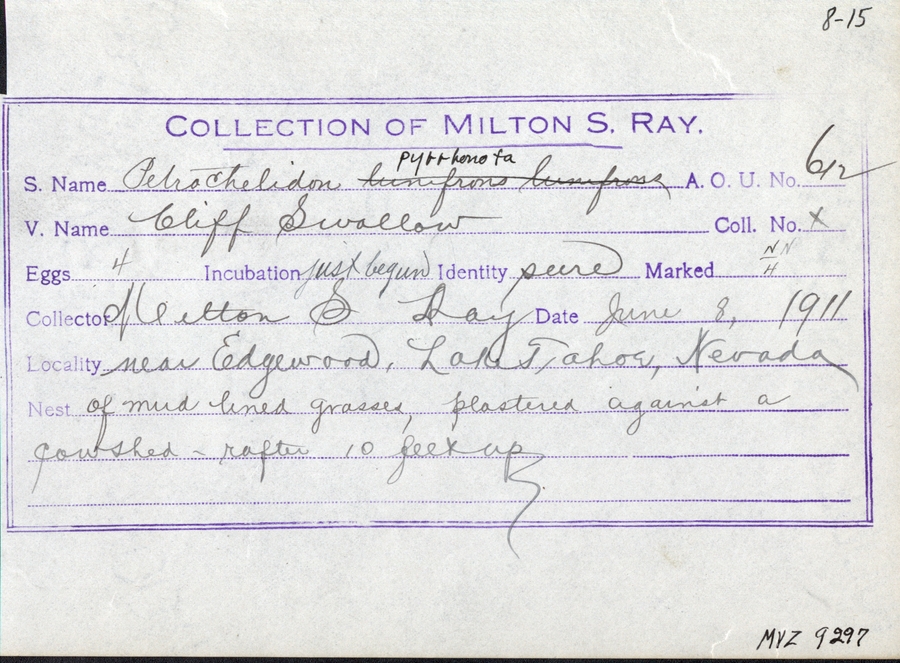 8-15
COLLECTION OF MILTON S. RAY.
pyrrhonota
S. Name Petrochelidon lunifrons lunifrons A. O. U. No. 612
V. Name Cliff Swallow Coll. No. X
Eggs 4 Incubation just begun Identity sure Marked N/4
Collector Milton S Ray Date June 8, 1911
Locality near Edgewood, Lake Tahoe, Nevada
Nest of mud lined grasses, plastered against a
cowshed - rafter 10 feet up
MVZ 9297